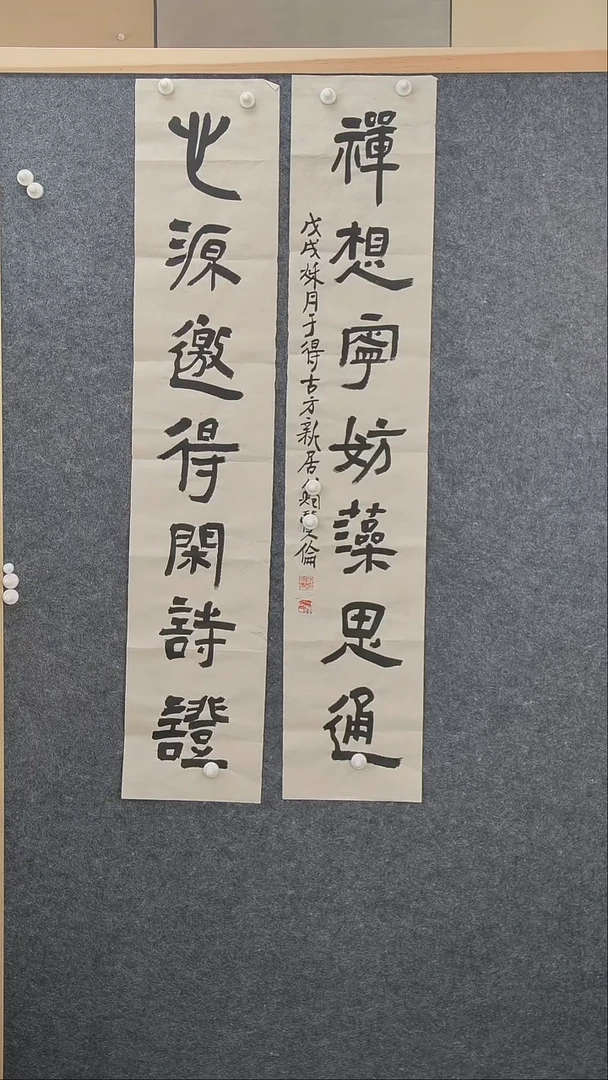 禪想寧妨藻思通
戊戌秋月于得古方新居倫
心源邀得閑詩證